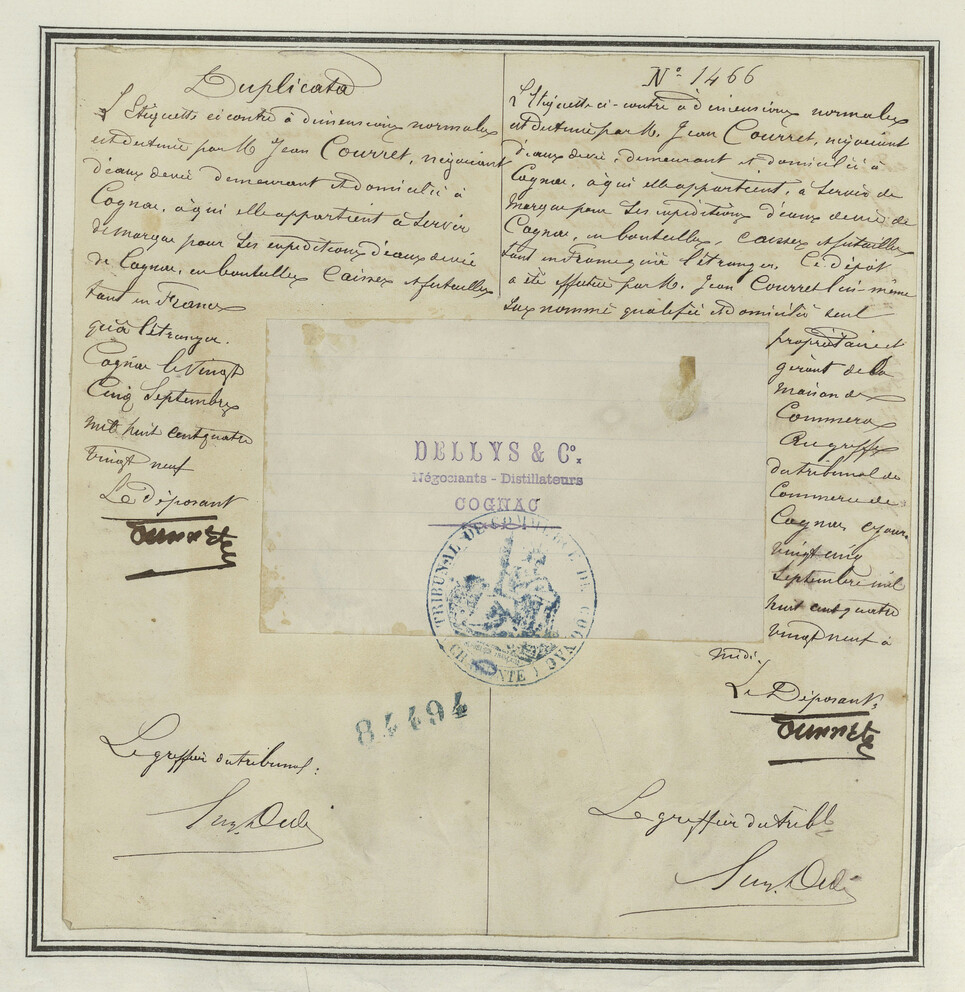 Duplicata
L'Etiquette ci contre à dimensions normales
est destinée par M Jean Courret, négociant
d'eaux devie demeurant et domicilié à
Cognac, à qui elle appartient à servir
de marque pour ses expéditions d'eaux devie
de Cognac, en bouteilles Caisses et futailles
tant en France
qu'à l'étranger.
Cognac le Vingt
Cinq Septembre
mil huit cent quatre
vingt neuf
Le Déposant
Courret
Le greffier du tribunal:
N° 1466
L'Etiquette ci-contre à dimensions normales
est destinée par M. Jean Courret, négociant
d'eaux devie, demeurant et domicilié à
Cognac, à qui elle appartient, à servir de
marque pour ses expéditions d'eaux devie de
Cognac, en bouteilles, caisses et futailles
tant en France qu'à l'étranger. Ce dépôt
a été effectué par M. Jean Courret lui-même
sus nommé qualifié et domicilié seul
propriétaire et
gérant de la
maison de
Commerce
Au greffe
du tribunal de
Commerce de
Cognac ce jour
vingt cinq
Septembre mil
huit cent quatre
vingt neuf à
midi.
Le Déposant,
Courret
Le greffier du tribl
DELLYS & Co.
Négociants - Distillateurs
COGNAC
TRIBUNAL DE COMMERCE DE COGNAC
(CHARENTE)
84494